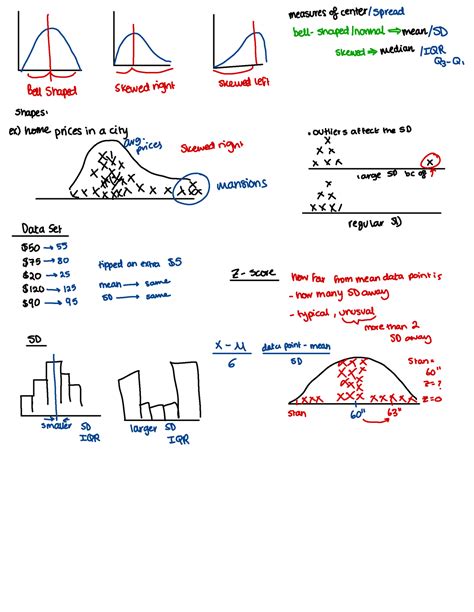 measures of center/spread
bell-shaped/normal ⇒ mean/SD
skewed → median/IQR
Q₃-Q₁
Bell Shaped
skewed right
skewed left
Shapes:
ex) home prices in a city
avg. prices
skewed right
mansions
. outliers affect the SD
large SD bc of ↑
regular SD
Data Set
$50 → 55
$75 → 80
$20 → 25
$120 → 125
$90 → 95
tipped an extra $5
mean → same
SD → same
Z-score
How far from mean data point is
- how many SD away
- typical, unusual
more than 2
SD away
SD
smaller SD
IQR
larger SD
IQR
x - μ
6
data point - mean
SD
Stan =
60"
Z=?
Z=0
Stan
60"
63"